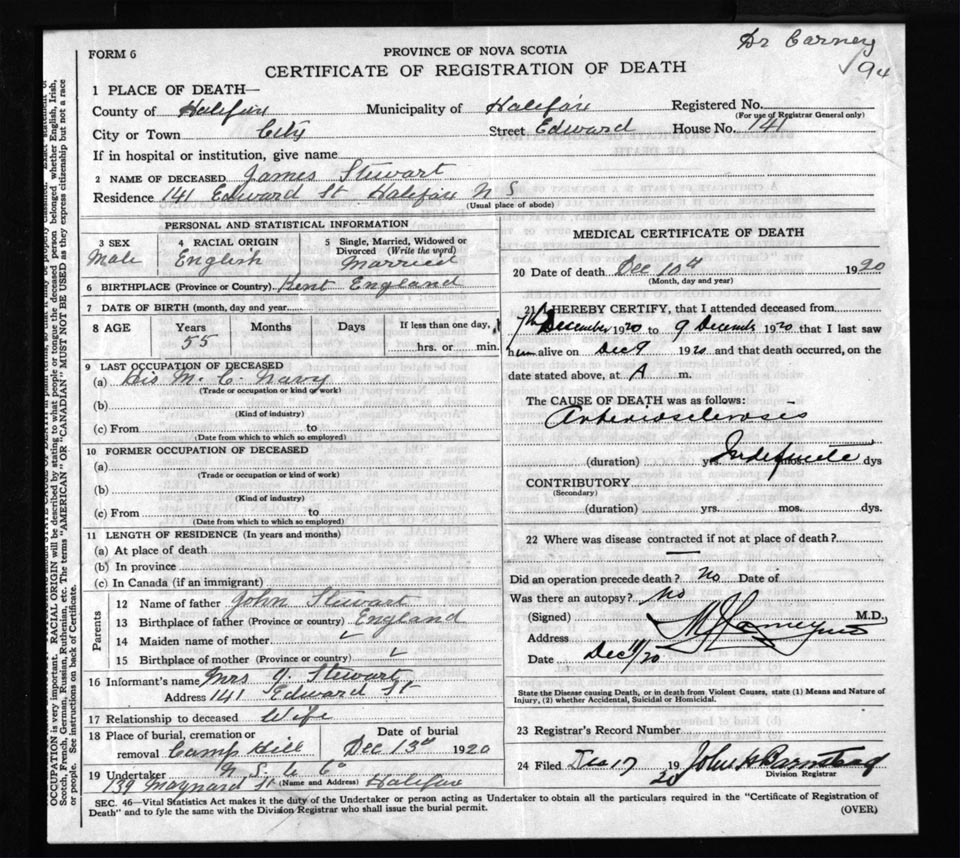 Dr Carney
94
FORM 6
PROVINCE OF NOVA SCOTIA
CERTIFICATE OF REGISTRATION OF DEATH
1 PLACE OF DEATH—
County of Halifax Municipality of Halifax Registered No.
(For use of Registrar General only)
City or Town City Street Edward House No. 141
If in hospital or institution, give name
2 NAME OF DECEASED James Stewart
Residence 141 Edward St Halifax N S
(Usual place of abode)
PERSONAL AND STATISTICAL INFORMATION
3 SEX Male
4 RACIAL ORIGIN English
5 Single, Married, Widowed or Divorced (Write the word) Married
6 BIRTHPLACE (Province or Country) Kent England
7 DATE OF BIRTH (month, day and year)
8 AGE Years Months Days If less than one day,
55 hrs. or min.
9 LAST OCCUPATION OF DECEASED
(a) His M. C. Navy
(Trade or occupation or kind of work)
(b)
(Kind of industry)
(c) From to
(Date from which to which so employed)
10 FORMER OCCUPATION OF DECEASED
(a)
(Trade or occupation or kind of work)
(b)
(Kind of industry)
(c) From to
(Date from which to which so employed)
11 LENGTH OF RESIDENCE (In years and months)
(a) At place of death
(b) In province
(c) In Canada (if an immigrant)
Parents
12 Name of father John Stewart
13 Birthplace of father (Province or country) England
14 Maiden name of mother ✓
15 Birthplace of mother (Province or country) ✓
16 Informant's name Mrs J. Stewart
Address 141 Edward St
17 Relationship to deceased Wife
18 Place of burial, cremation or removal Camp Hill
Date of burial
Dec 13th 1920
19 Undertaker N. S. U. Co
139 Maynard St (Name and Address) Halifax
MEDICAL CERTIFICATE OF DEATH
20 Date of death Dec 10th 1920
(Month, day and year)
21 I HEREBY CERTIFY, that I attended deceased from
7th December 1920 to 9 December 1920 that I last saw
him alive on Dec 9 1920 and that death occurred, on the
date stated above, at A m.
The CAUSE OF DEATH was as follows:
Arteriosclerosis
(duration) yrs. Indefinite mos. dys
CONTRIBUTORY
(Secondary)
(duration) yrs. mos. dys.
22 Where was disease contracted if not at place of death?
—
Did an operation precede death? No Date of
Was there an autopsy? No
(Signed) M.D.
Address
Date Dec 11/20
State the Disease causing Death, or in death from Violent Causes, state (1) Means and Nature of
Injury, (2) whether Accidental, Suicidal or Homicidal.
23 Registrar's Record Number
24 Filed Dec 17 1920 John H Barnstead
Division Registrar
SEC. 46—Vital Statistics Act makes it the duty of the Undertaker or person acting as Undertaker to obtain all the particulars required in the "Certificate of Registration of
Death" and to fyle the same with the Division Registrar who shall issue the burial permit.
(OVER)
OCCUPATION is very important. RACIAL ORIGIN will be described by stating to what people or tongue the deceased person belonged, whether English, Irish,
Scotch, French, German, Russian, Ruthenian, etc. The terms "AMERICAN" OR "CANADIAN" MUST NOT BE USED as they express citizenship but not a race
or people. See instructions on back of Certificate.